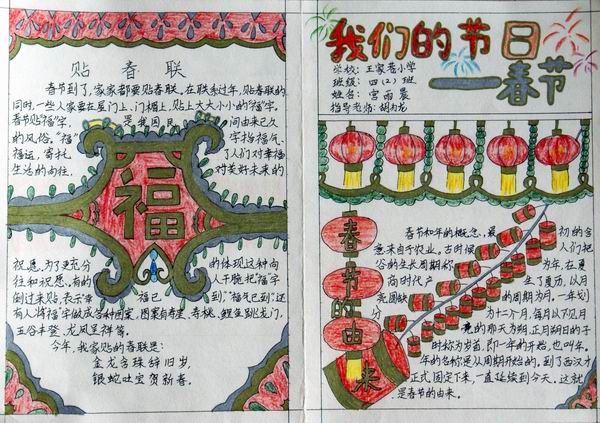 贴春联
春节到了,家家都要贴春联,在联系过年,贴春联的
同时,一些人家要在屋门上、门楣上,贴上大大小小的“福”字。
春节贴“福”字 是我国民间由来已久
的风俗。“福” 字指福气、
福运,寄托 了人们对幸福
生活的向往, 对美好未来的
祝愿。为了更充分 的体现这种向
往和祝愿,有的 人干脆把“福”字
倒过来贴,表示“幸福已 到”“福气已到”还
有人将“福”字做成各种图案,图案有寿星、寿桃、鲤鱼跳龙门、
五谷丰登、龙凤呈祥等。
今年,我家贴的春联是:
金龙含珠辞旧岁,
银蛇吐宝贺新春。
福
我们的节日
——春节
学校:王家巷小学
班级:四(2)班
姓名:宫雨晨
指导老师:胡向龙
春节的由来
春节和年的概念,最 初的含
意来自于农业。古时候 人们把
谷的生长周期称 为年,在夏
商时代产 生了夏历,以月
亮圆缺 的周期为月,一年划
分 为十二个月,每月以不见月
亮的那天为朔,正月朔日的子
时称为岁首,即一年的开始,也叫年。
年的名称是从周期开始的。到了西汉才
正式固定下来,一直延续到今天。这就
是春节的由来。